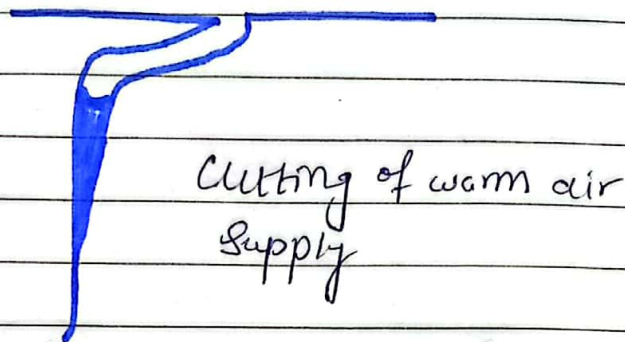 Cutting of warm air
Supply